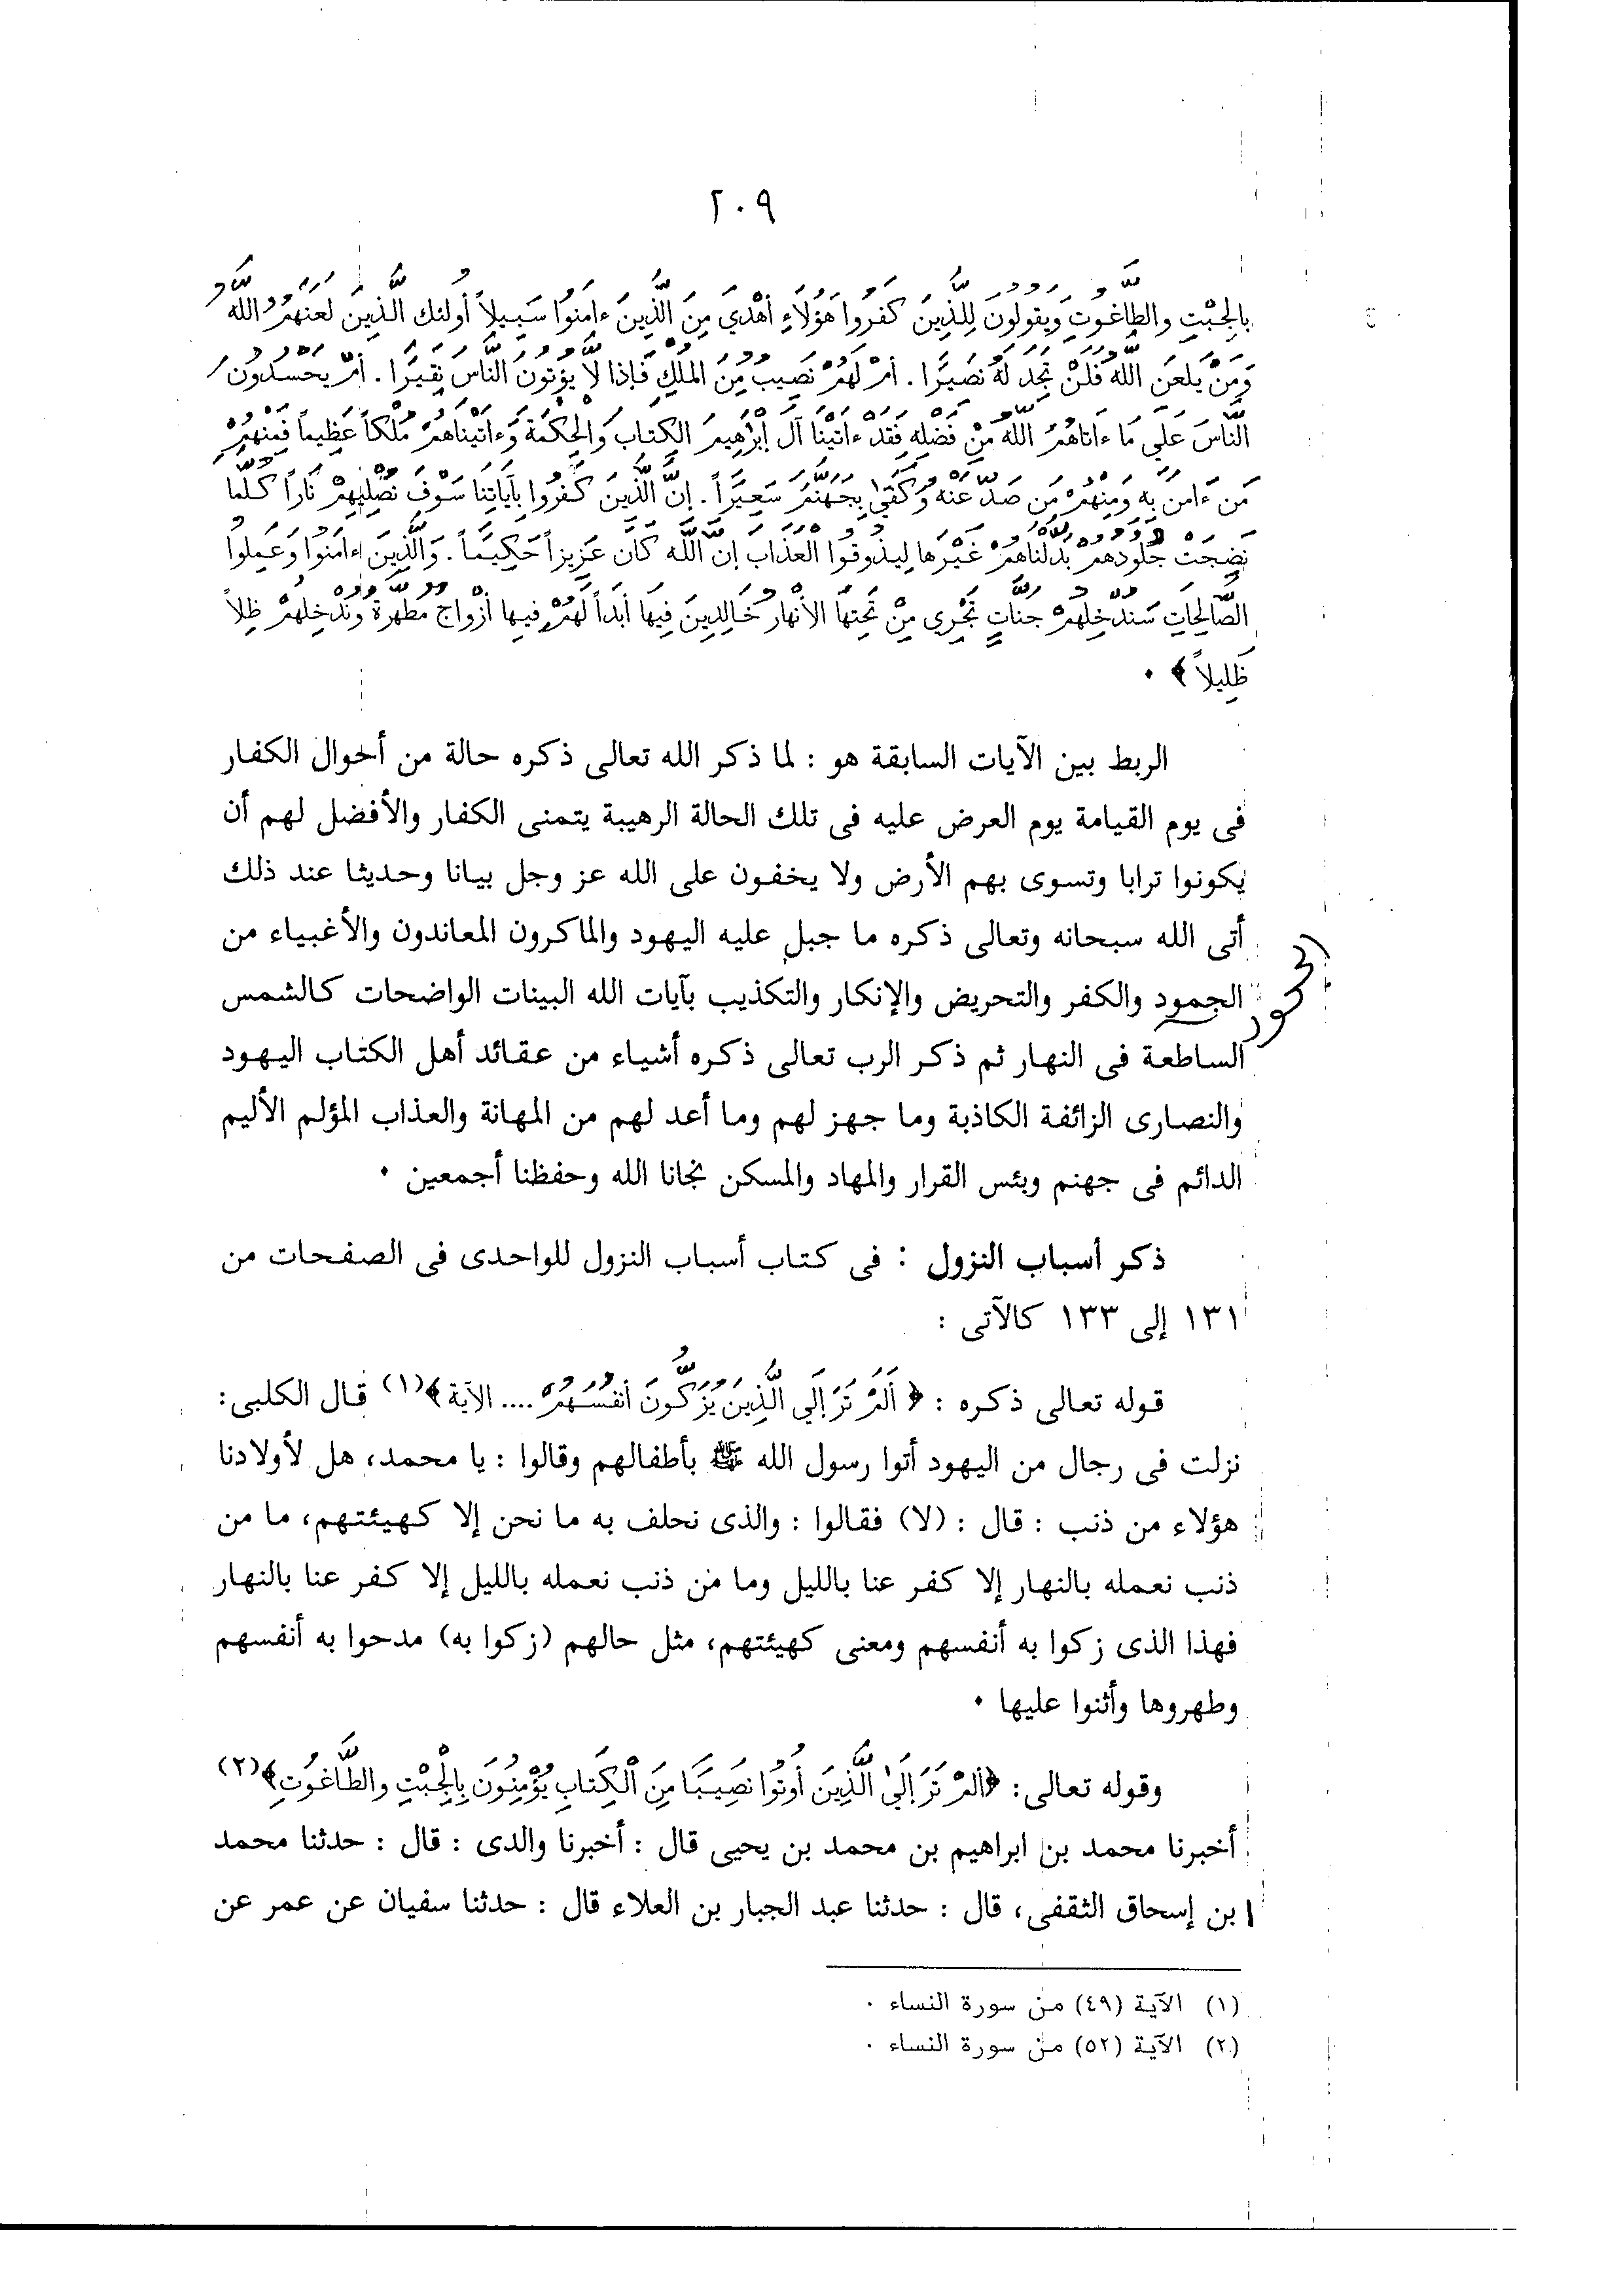 ٢٠٩
بِالجِبْتِ والطَّاغُوتِ وَيَقُولُونَ لِلَّذِينَ كَفَرُوا هَؤُلَاءِ أَهْدَيَ مِنَ الَّذِينَ ءامَنُوا سَبِيلاً أُولئك الَّذِينَ لَعَنَهُمُ اللَّهُ
وَمَنْ يَلعَنِ اللَّهُ فَلَنْ تَجِدَ لَهُ نَصِيرًا . أمْ لَهُمْ نَصِيبٌ مِّنَ المُلْكِ فَإِذا لاَّ يُؤْتُونَ النَّاسَ نَقِيرًا . أمْ يَحْسُدُونَ
النَّاسَ عَلَي مَا ءاتاهُمُ اللَّهُ مِنْ فَضْلِهِ فَقَدْ ءاتَيْنَا آلَ إِبْرَاهِيمَ الكِتابَ وَالحِكْمَةَ وَءاتَيْنَاهُمْ مُلْكاً عَظِيماً فَمِنْهُمْ
مَن ءامَنَ بِهِ وَمِنْهُمْ مَن صَدَّ عَنْهُ وَكَفَيَ بِجَهَنَّمَ سَعِيرًا . إِنَّ الَّذِينَ كَفَرُوا بِآيَاتِنَا سَوْفَ نُصْلِيهِمْ نَاراً كُلَّمَا
نَضِجَتْ جُلُودهُمْ بَدَّلْنَاهُمْ غَيْرَها لِيَذُوقُوا الْعَذَابَ إِنَّ اللَّهَ كَانَ عَزِيزاً حَكِيمَاً . وَالَّذِينَ ءامَنُوا وَعَمِلُوا
الصَّالِحَاتِ سَنُدْخِلُهُمْ جَنَّاتٍ تَجْرِي مِنْ تَحْتِهَا الأَنْهَارُ خَالِدِينَ فِيهَا أبَداً لَهُمْ فِيها أزْوَاجٌ مُطَهَّرَةٌ وَنُدْخِلُهُمْ ظِلاً
ظَلِيلاً ﴾ ٠
الربط بين الآيات السابقة هو : لما ذكر الله تعالى ذكره حالة من أحوال الكفار
فى يوم القيامة يوم العرض عليه فى تلك الحالة الرهيبة يتمنى الكفار والأفضل لهم أن
يكونوا ترابا وتسوى بهم الأرض ولا يخفون على الله عز وجل بيانا وحديثا عند ذلك
أتى الله سبحانه وتعالى ذكره ما جبل عليه اليهود والماكرون المعاندون والأغبياء من
الجمود والكفر والتحريض والإنكار والتكذيب بآيات الله البينات الواضحات كالشمس
الجحود
الساطعة فى النهار ثم ذكر الرب تعالى ذكره أشياء من عقائد أهل الكتاب اليهود
والنصارى الزائفة الكاذبة وما جهز لهم وما أعد لهم من المهانة والعذاب المؤلم الأليم
الدائم فى جهنم وبئس القرار والمهاد والمسكن نجانا الله وحفظنا أجمعين ٠
ذكر أسباب النزول : فى كتاب أسباب النزول للواحدى فى الصفحات من
١٣١ إلى ١٣٣ كالآتى :
قوله تعالى ذكره : ﴿ أَلَمْ تَرَ إِلَي الَّذِينَ يُزَكُّونَ أنفُسَهُمْ .... الآية ﴾(١) قال الكلبى :
نزلت فى رجال من اليهود أتوا رسول الله ﷺ بأطفالهم وقالوا : يا محمد، هل لأولادنا
هؤلاء من ذنب : قال : (لا) فقالوا : والذى نحلف به ما نحن إلا كهيئتهم، ما من
ذنب نعمله بالنهار إلا كفر عنا بالليل وما من ذنب نعمله بالليل إلا كفر عنا بالنهار
فهذا الذى زكوا به أنفسهم ومعنى كهيئتهم، مثل حالهم (زكوا به) مدحوا به أنفسهم
وطهروها وأثنوا عليها ٠
وقوله تعالى : ﴿ألَمْ تَرَ إلَيٰ الَّذِينَ أُوتُوا نَصِيبًا مِنَ الْكِتَابِ يُؤْمِنُونَ بِالْجِبْتِ والطَّاغُوتِ﴾(٢)
أخبرنا محمد بن ابراهيم بن محمد بن يحيى قال : أخبرنا والدى : قال : حدثنا محمد
ابن إسحاق الثقفى، قال : حدثنا عبد الجبار بن العلاء قال : حدثنا سفيان عن عمر عن
(١) الآية (٤٩) من سورة النساء ٠
(٢) الآية (٥٢) من سورة النساء ٠